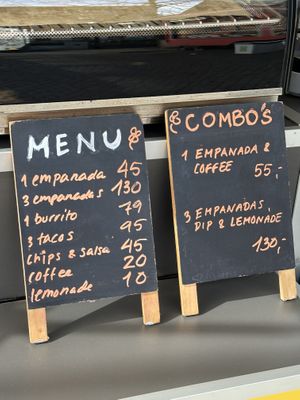 MENU
1 empanada 45
3 empanadas 130
1 burrito 79
3 tacos 95
chips & salsa 45
coffee 20
lemonade 10
COMBO'S
1 EMPANADA &
COFFEE 55,-
3 EMPANADAS,
DIP & LEMONADE
130,-